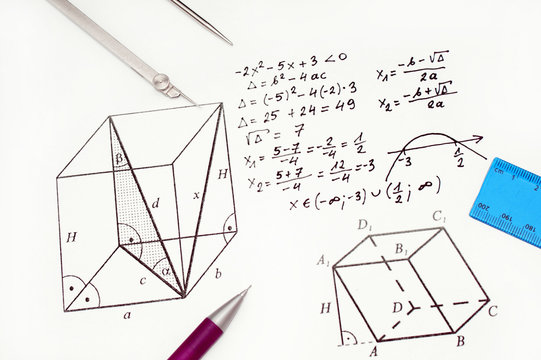 -2x² - 5x + 3 < 0
Δ = b² - 4ac
Δ = (-5)² - 4(-2)·3
Δ = 25 + 24 = 49
√Δ = 7
x₁ = (5-7)/-4 = -2/-4 = 1/2
x₂ = (5+7)/-4 = 12/-4 = -3
x ∈ (-∞; -3) ∪ (1/2; ∞)
x₁ = (-b-√Δ)/2a
x₂ = (-b+√Δ)/2a
-3 1/2
β
H d x H
α
c b
a
D₁ C₁
A₁ B₁
H D C
A B
cm 1 2
200 190 180